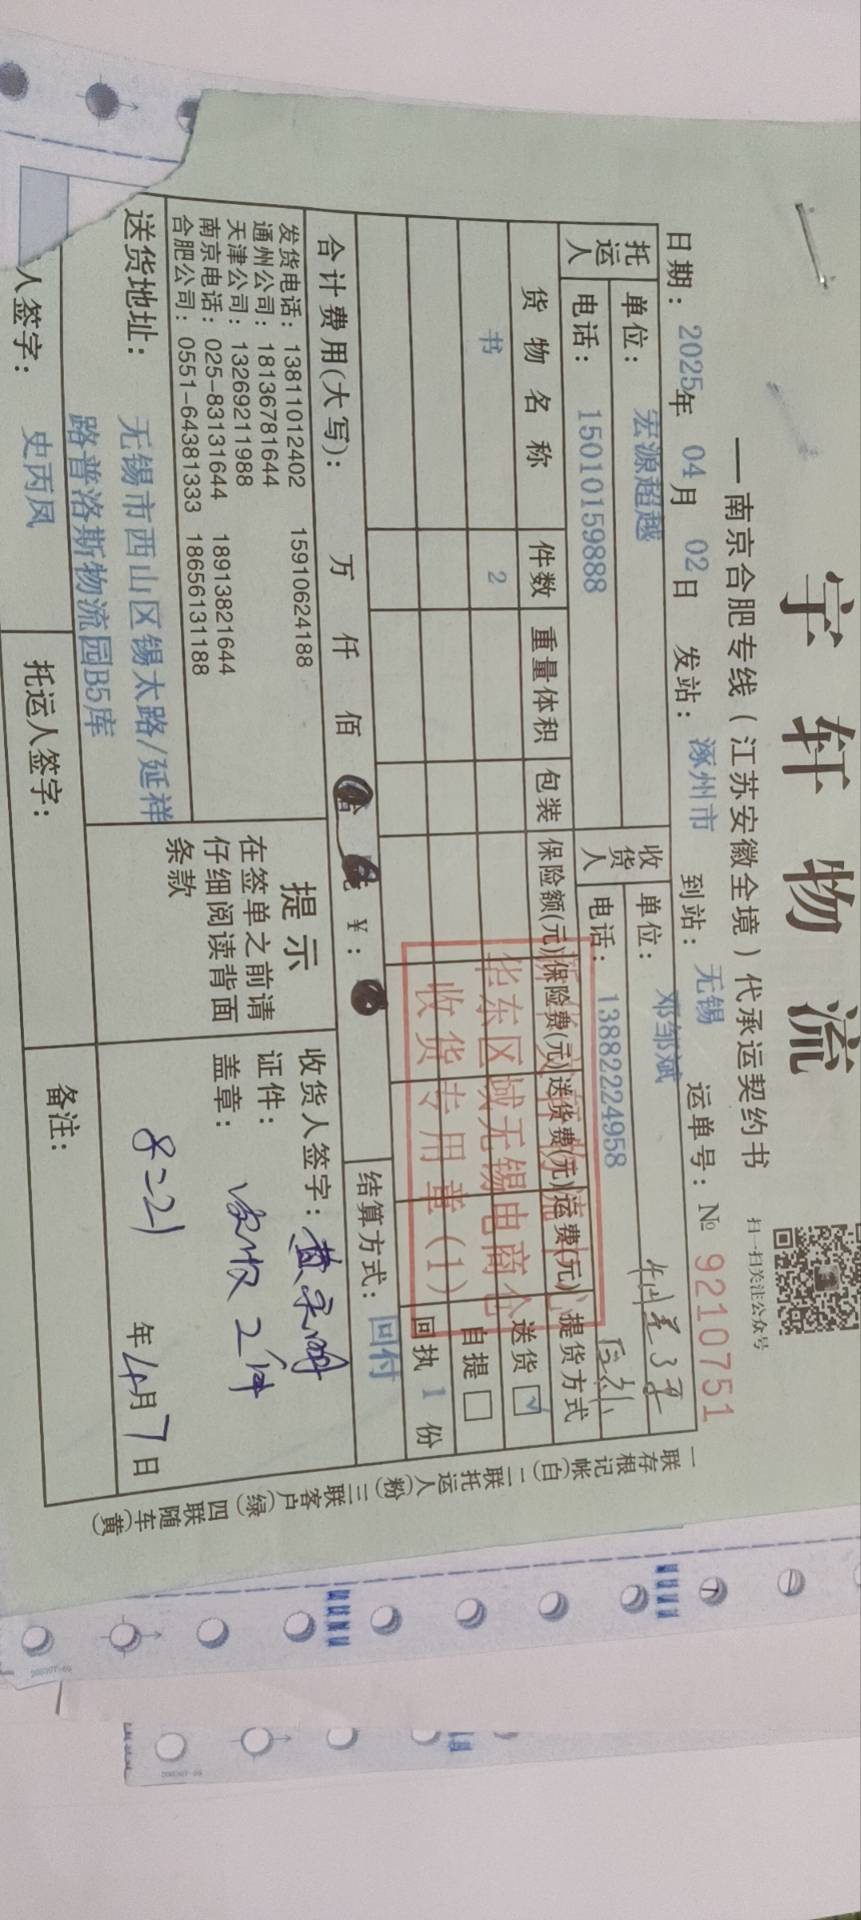 宇轩物流
—南京合肥专线（江苏安徽全境）代承运契约书
扫一扫关注公众号
日期：2025年 04月 02日 发站：涿州市 到站：无锡 运单号：№ 9210751
托运人 单位：宏源超越 收货人 单位：邓邹斌
电话：15010159888 电话：13882224958
货物名称 件数 重量体积 包装 保险额(元) 保险费(元) 送货费(元) 运费(元) 提货方式
书 2 送货☑
自提□
回执 1 份
华东区域无锡电商仓
收货专用章(1)
合计费用(大写)： 万 仟 佰 ￥： 结算方式：回付
发货电话：13811012402 15910624188
通州公司：18136781644
天津公司：13269211988
南京电话：025-83131644 18913821644
合肥公司：0551-64381333 18656131188
提示
在签单之前请
仔细阅读背面
条款
收货人签字：
证件：
盖章：
实收2件
8=21
年4月7日
送货地址：无锡市西山区锡太路/延祥
路普洛斯物流园B5库
人签字：史丙凤 托运人签字： 备注：
一联存根记帐(白) 二联托运人(粉) 三联客户(绿) 四联随车(黄)